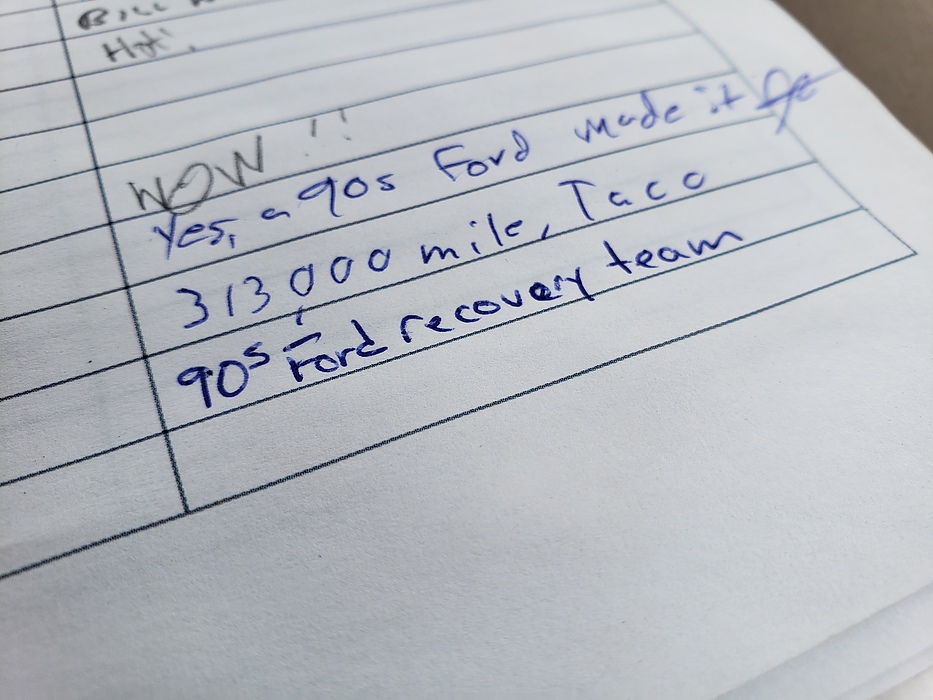 Hot!
WOW!!
Yes, a 90s Ford made it
313,000 mile, Taco
90s Ford recovery team